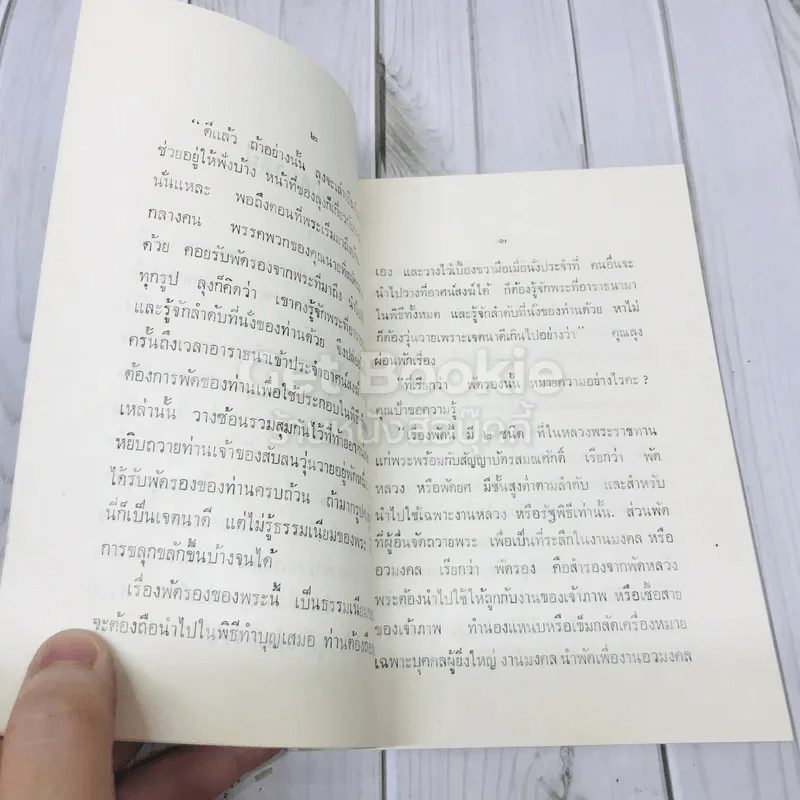 ๒
“ดีแล้ว ถ้าอย่างนั้น ลุงจะเล่า
ช่วยอยู่ให้ฟังบ้าง หน้าที่ของลุงก็เกี่ยวกับ
นั่นแหละ พอถึงตอนที่พระเริ่มมาถึง
กลางคน พรรคพวกของคุณนาย
ด้วย คอยรับพัดรองจากพระที่มาถึง
ทุกรูป ลุงก็คิดว่า เขาคงรู้จักพระที่
และรู้จักลำดับที่นั่งของท่านด้วย จึง
ครั้นถึงเวลาอาราธนาเข้าประจำอาศน์สงฆ์
ต้องการพัดของท่านเพื่อใช้ประกอบในพิธี
เหล่านั้น วางซ้อนรวมสุมกันไว้ที่ท้าย
หยิบถวายท่านเจ้าของสับสนวุ่นวายอยู่พัก
ได้รับพัดรองของท่านครบถ้วน ถ้ามากรูป
นี่ก็เป็นเจตนาดี แต่ไม่รู้ธรรมเนียมของพระ
การขลุกขลักขึ้นบ้างจนได้
เรื่องพัดรองของพระนี้ เป็นธรรมเนียม
จะต้องถือนำไปในพิธีทำบุญเสมอ ท่านต้องถือ
๓
เอง และวางไว้เบื้องขวามือเมื่อนั่งประจำที่ คนอื่นจะ
นำไปวางที่อาศน์สงฆ์ได้ ก็ต้องรู้จักพระที่อาราธนามา
ในพิธีทั้งหมด และรู้จักลำดับที่นั่งของท่านด้วย หาไม่
ก็ต้องวุ่นวายเพราะเจตนาดีเกินไปอย่างว่า” คุณลุง
ผ่อนพักเรื่อง
“ที่เรียกว่า พัดรองนั้น หมายความอย่างไรคะ ?
คุณป้าขอความรู้
“เรื่องพัดนี้ มี ๒ ชนิด ที่ในหลวงพระราชทาน
แก่พระพร้อมกับสัญญาบัตรสมณศักดิ์ เรียกว่า พัด
หลวง หรือพัดยศ มีชั้นสูงค่ำตามลำดับ และสำหรับ
นำไปใช้เฉพาะงานหลวง หรือรัฐพิธีเท่านั้น. ส่วนพัด
ที่ผู้อื่นจัดถวายพระ เพื่อเป็นที่ระลึกในงานมงคล หรือ
อวมงคล เรียกว่า พัดรอง คือสำรองจากพัดหลวง
พระต้องนำไปใช้ให้ถูกกับงานของเจ้าภาพ หรือเชื้อสาย
ของเจ้าภาพ ทำนองแหนบหรือเข็มกลัดเครื่องหมาย
เฉพาะบุคคลผู้ยิ่งใหญ่ งานมงคล นำพัดเพื่องานอวมงคล
Get Bookie
ร้านหนังสือบุ๊คกี้